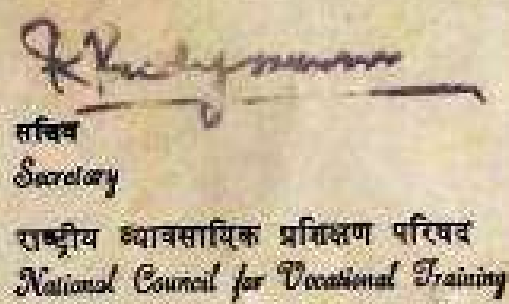 सचिव
Secretary
राष्ट्रीय व्यावसायिक प्रशिक्षण परिषद
National Council for Vocational Training